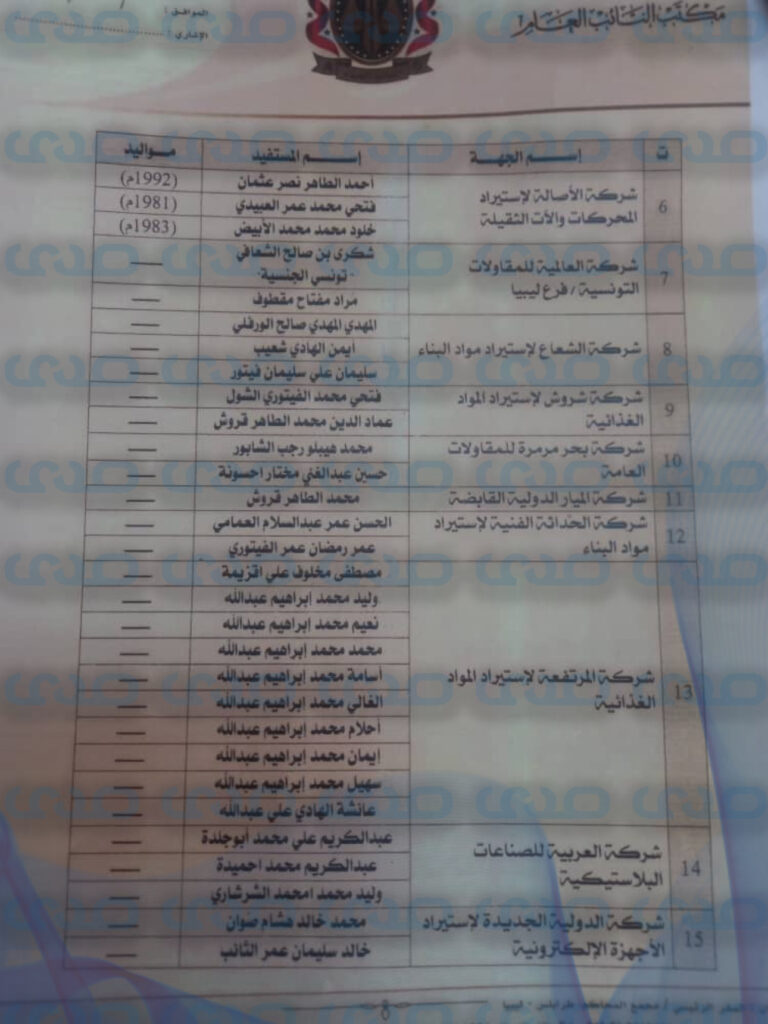 مكتب النائب العام
الموافق :
الإشاري :
ت إسم الجهة إسم المستفيد مواليد
6 شركة الأصالة لإستيراد المحركات والآت الثقيلة
احمد الطاهر نصر عثمان (1992م)
فتحي محمد عمر العبيدي (1981م)
خلود محمد محمد الأبيض (1983م)
7 شركة العالمية للمقاولات التونسية / فرع ليبيا
شكرى بن صالح الشعافي
"تونسي الجنسية"
مراد مفتاح مقطوف
8 شركة الشعاع لإستيراد مواد البناء
المهدي المهدي صالح الورفلي
ايمن الهادي شعيب
سليمان علي سليمان فيتور
9 شركة شروش لإستيراد المواد الغذائية
فتحي محمد الفيتوري الشول
عماد الدين محمد الطاهر قروش
10 شركة بحر مرمرة للمقاولات العامة
محمد هيبلو رجب الشابور
حسين عبدالغني مختار احسونة
11 شركة الميار الدولية القابضة
محمد الطاهر قروش
12 شركة الحداثة الفنية لإستيراد مواد البناء
الحسن عمر عبدالسلام العمامي
عمر رمضان عمر الفيتوري
13 شركة المرتفعة لإستيراد المواد الغذائية
مصطفى مخلوف علي اقزيمة
وليد محمد إبراهيم عبدالله
نعيم محمد إبراهيم عبدالله
محمد محمد إبراهيم عبدالله
أسامة محمد إبراهيم عبدالله
الغالي محمد إبراهيم عبدالله
أحلام محمد إبراهيم عبدالله
إيمان محمد إبراهيم عبدالله
سهيل محمد إبراهيم عبدالله
عائشة الهادي علي عبدالله
14 شركة العربية للصناعات البلاستيكية
عبدالكريم علي محمد أبوجلدة
عبدالكريم محمد احميدة
وليد محمد امحمد الشرشاري
15 شركة الدولية الجديدة لإستيراد الأجهزة الإلكترونية
محمد خالد هشام صوان
خالد سليمان عمر التائب
المقر الرئيسي / مجمع المحاكم طرابلس - ليبيا
8
صدى